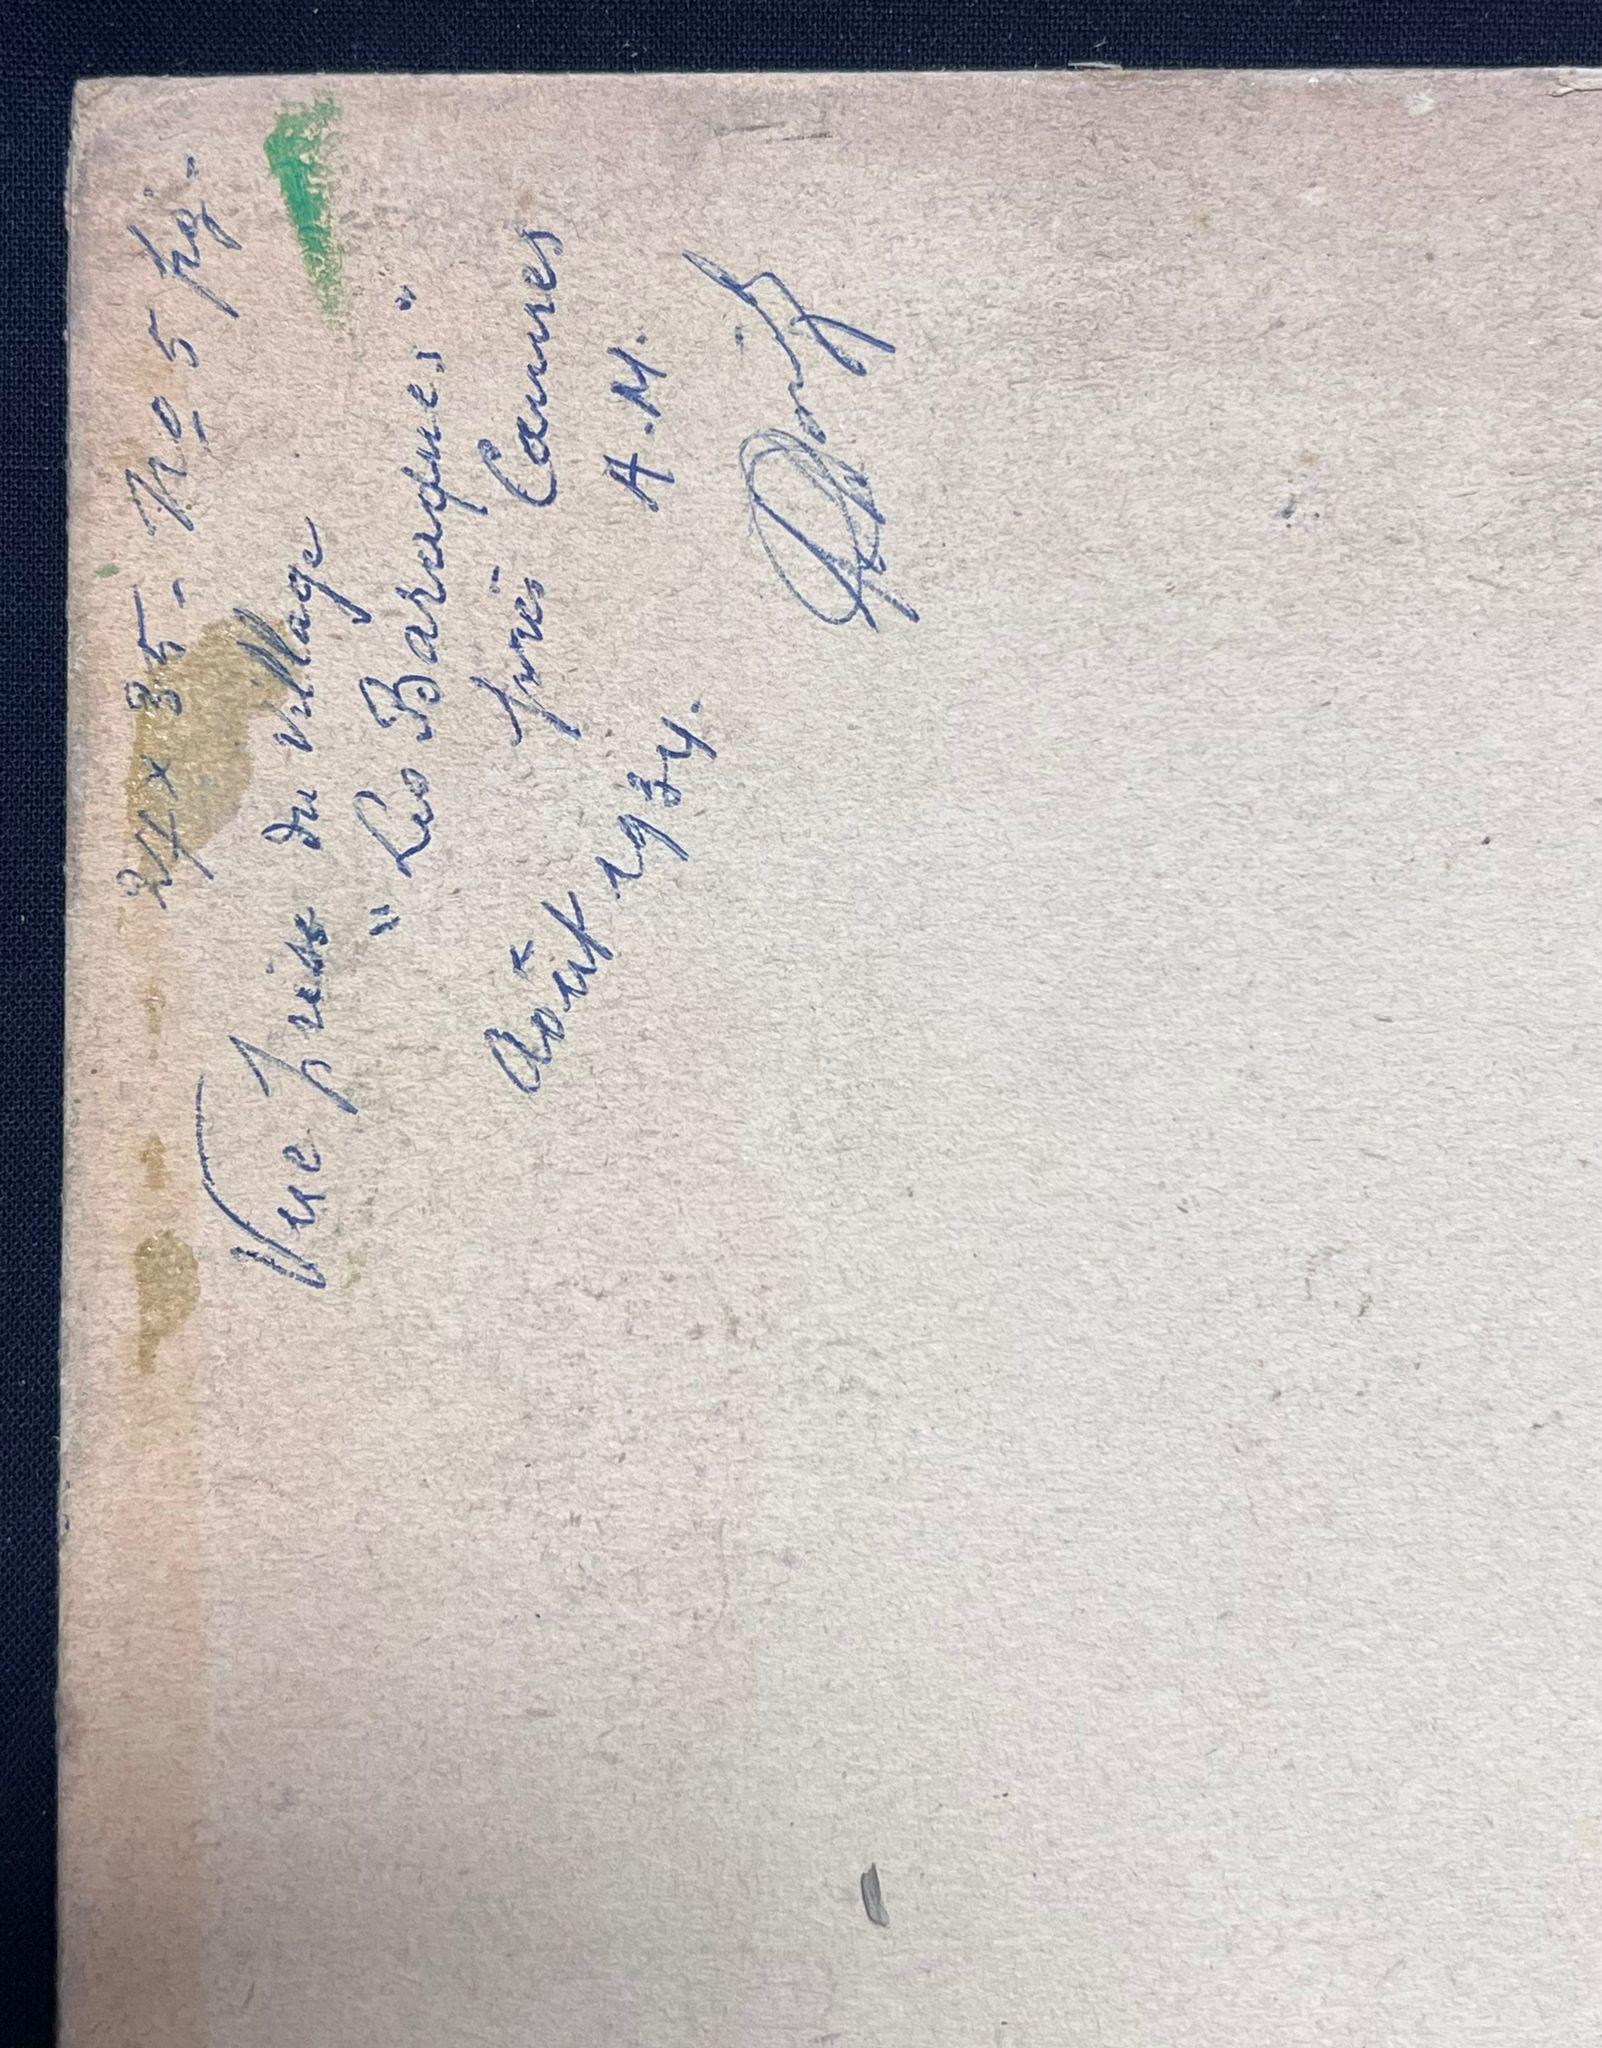 27 x 35 - No 5 pg.
Vue prise du village
"Les Baraques"
près Cannes
A.M.
Août 1934.